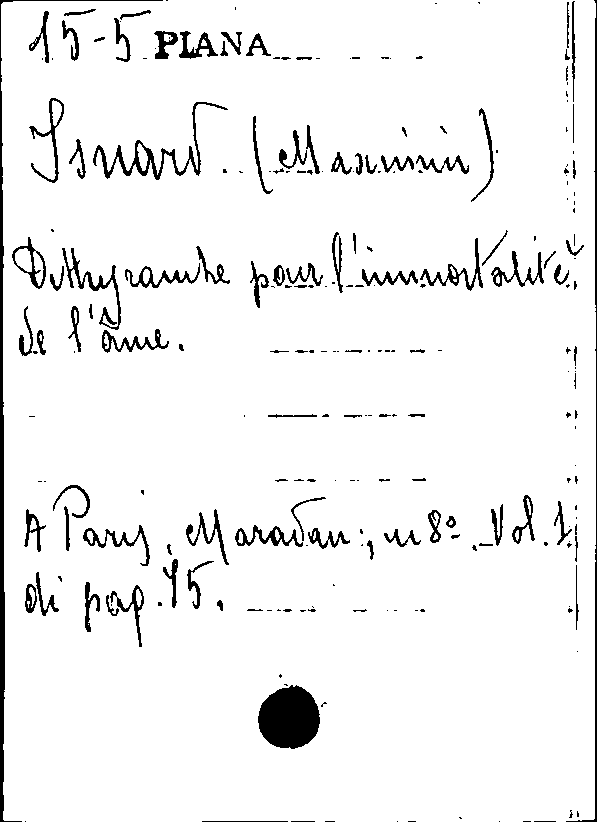 15-5 PIANA
Isnard. (Maximin)
Dithyrambe pour l'immortalité
de l'âme.
A Paris, Maradan:, in 8º. Vol. 1
di pag. 75.